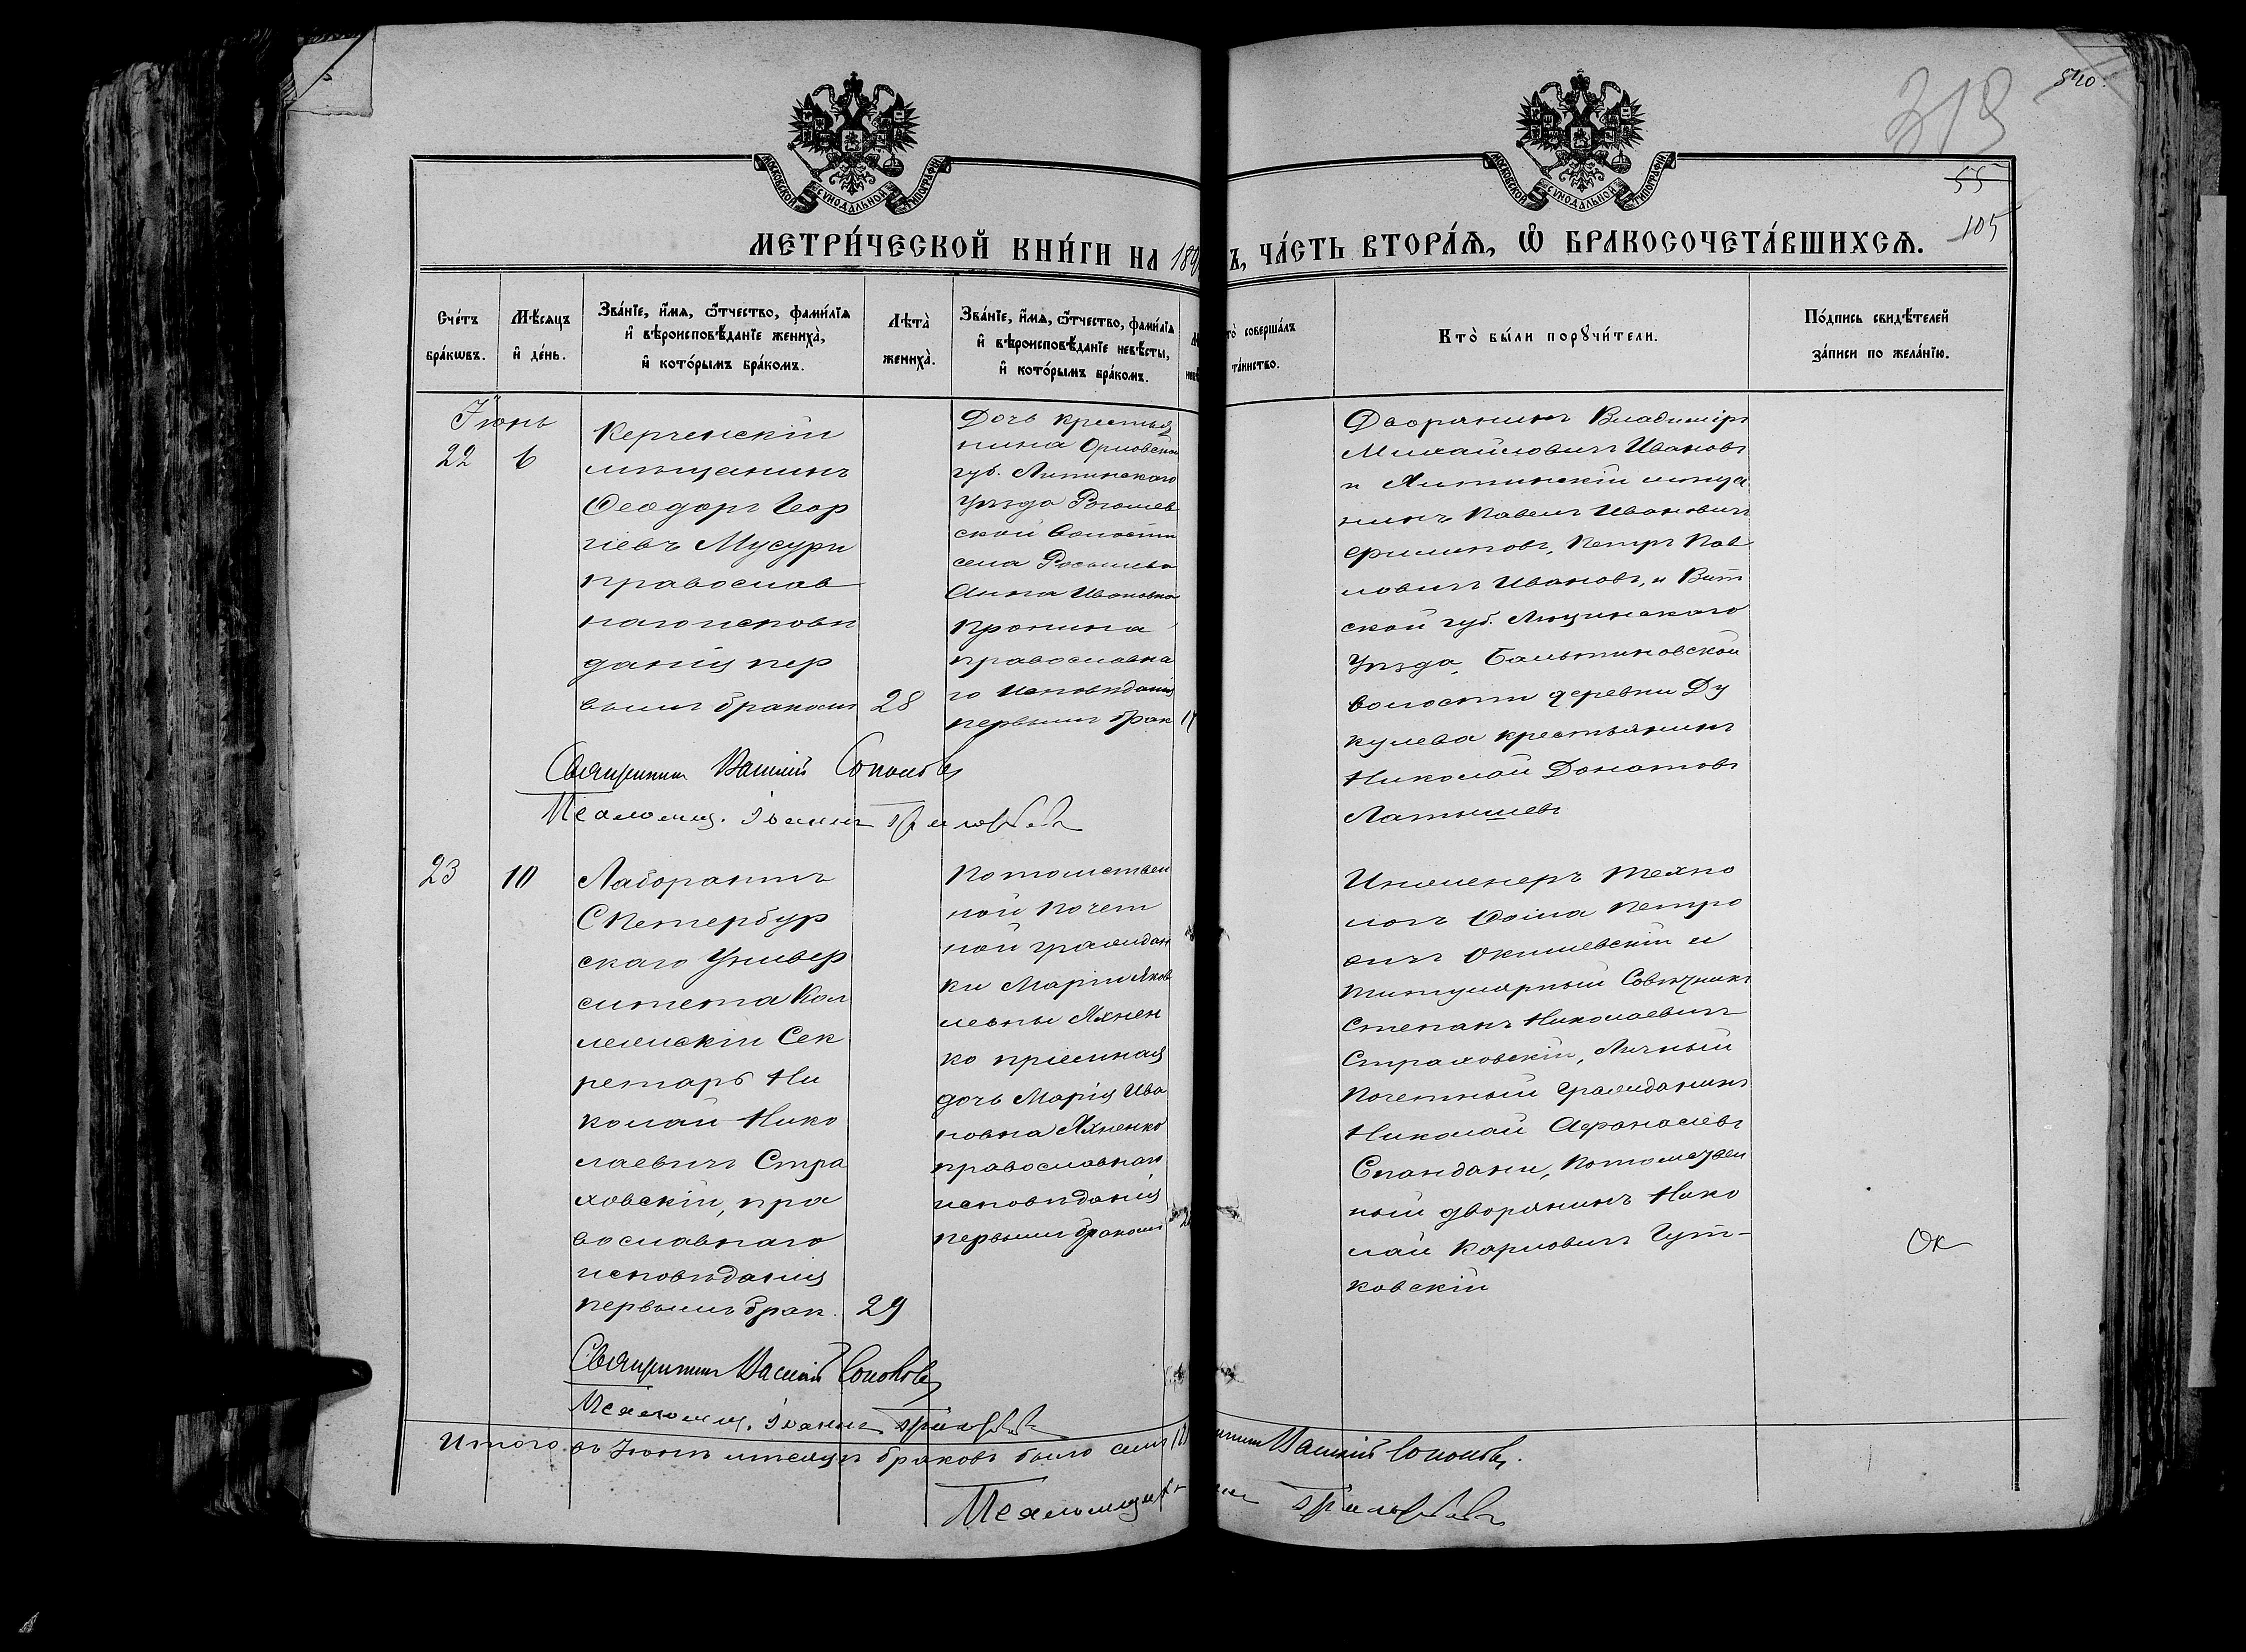 319
840.
55
105
МОСКОВСКОЙ СѴНОДАЛЬНОЙ ТИПОГРАФІИ
МОСКОВСКОЙ СѴНОДАЛЬНОЙ ТИПОГРАФІИ
МЕТРИ́ЧЕСКОЙ КНИ́ГИ НА 189
Ъ, ЧА́СТЬ ВТОРА́Ѧ, Ѽ БРАКОСОЧЕТА́ВШИХСѦ.
Сче́тъ бра́кѡвъ.
Мѣ́сяцъ и҆ де́нь.
Зва́нїе, и҆́мѧ, ѻ҆́тчество, фами́лїѧ
и҆ вѣроисповѣ́данїе жениха̀,
и҆ кото́рымъ бра́комъ.
Лѣта̀ жениха̀.
Зва́нїе, и҆́мѧ, ѻ҆́тчество, фами́лїѧ
и҆ вѣроисповѣ́данїе невѣ́сты,
и҆ кото́рымъ бра́комъ.
то̀ соверша́лъ
та́инство.
Кто̀ бы́ли порꙋчи́тели.
По́дпись свидѣ́телей
за́писи по жела́нїю.
Іюнь
22
6
Керченскій
мѣщанинъ
Ѳеодоръ Геор
гіевъ Мусури
православ
наго исповѣ
данія пер
вымъ бракомъ
28
Дочь крестья
нина Орловской
губ.
Уѣзда
ской волости
села
Анна Ивановна
Пронина
православна
го исповѣданія
первымъ брак
Дворянинъ Владиміръ
Михайловичъ Ивановъ
и Ялтинскій мѣща
нинъ Павелъ Ивановичъ
Филиповъ, Петръ Пав
ловичъ Ивановъ, и Вит
ской губ. Люцинскаго
Уѣзда, Бальтиновской
волости деревни Ду
кулева крестьянинъ
Николай Донатовъ
Латышевъ
Священникъ Василій Сополовъ
Псаломщ. Іоаннъ
23
10
Лаборантъ
СПетербур
скаго Универ
ситета Кол
лежскій Сек
ретарь Ни
колай Нико
лаевичъ Стра
ховскій, пра
вославнаго
исповѣданія
первымъ брак.
29
Потомствен
ной Почет
ной граждан
ки Маріи Яков
левны Яхнен
ко пріемная
дочь Марія Ива
новна Яхненко
православнаго
исповѣданія
первымъ бракомъ
Инженеръ Техно
логъ Ѳома Петро
вичъ Окишевскій и
Титулярный Совѣтникъ
Степанъ Николаевичъ
Страховскій, Личный
Почетный Гражданинъ
Николай Афанасіевъ
Спандани, Потомствен
ный дворянинъ Нико
лай Карловичъ Гут-
ковскій
Ок
Священникъ Василій Сополовъ
Псаломщ. Іоаннъ
Итого въ Іюнѣ мѣсяцѣ браковъ было
Василій Сополовъ.
Псаломщикъ